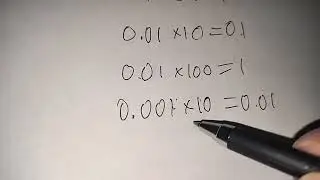 0.01 ×10=01
0.01 ×100=1
0.001×10=0.01